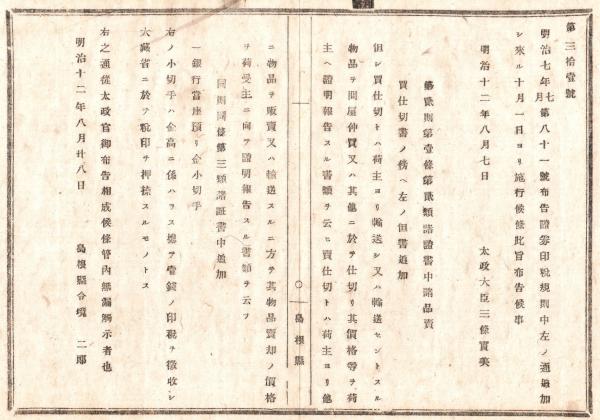 第三拾壹號
明治七年七月第八十一號布告證券印税規則中左ノ通追加
シ來ル十月一日ヨリ施行候條此旨布告候事
明治十二年八月七日
太政大臣三條實美
第貳則第壹條第貳類諸證書中諸品賣
買仕切書ノ傍ヘ左ノ但書追加
但シ買仕切トハ荷主ヨリ輸送シ又ハ輸送セントスル
物品ヲ問屋仲買又ハ其他ニ於テ仕切リ其價格等ヲ荷
主ヘ證明報告スル書類ヲ云ヒ賣仕切トハ荷主ヨリ他
○ 島根縣
ニ物品ヲ販賣又ハ輸送スルニ方テ其物品賣却ノ價格
ヲ荷受主ニ向ヲ證明報告スル書類ヲ云フ
同則同條第三類諸証書中追加
一銀行當座預リ金小切手
右ノ小切手ハ金高ニ係ハラス總テ壹錢ノ印税ヲ徴收シ
大藏省ニ於テ税印ヲ押捺スルモノトス
右之通從太政官御布告相成候條管內無漏觸示者也
明治十二年八月廿八日
島根縣令境 二郎